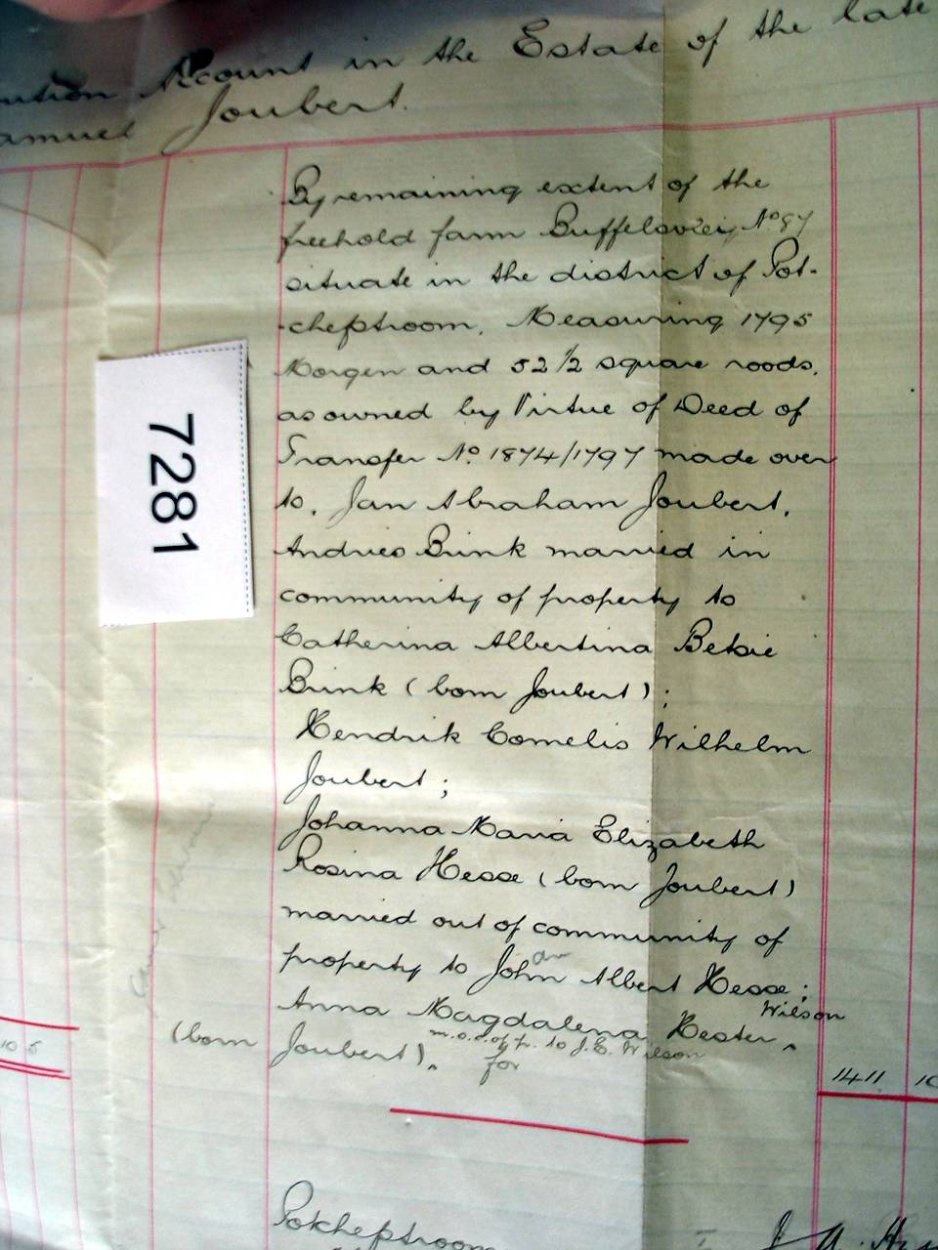 ution Account in the Estate of the late
amuel Joubert.
By remaining extent of the
freehold farm No 87
situate in the district of Pot-
-chefstroom. Measuring 1795
Morgen and 52 1/2 square roods.
as owned by Virtue of Deed of
Transfer No. 1874/1797 made over
to. Jan Abraham Joubert.
Andries Brink married in
community of property to
Catherina Albertina Betsie
Brink (born Joubert);
Hendrik Cornelis Wilhelm
Joubert;
Johanna Maria Elizabeth
Rosina Hesse (born Joubert)
married out of community of
property to Johan Albert Hesse;
Anna Magdalena Hester Wilson
(born Joubert). m.o.c. of pr. to J.E. Wilson
for
10 5
1411 10
Potchefstroom
7281